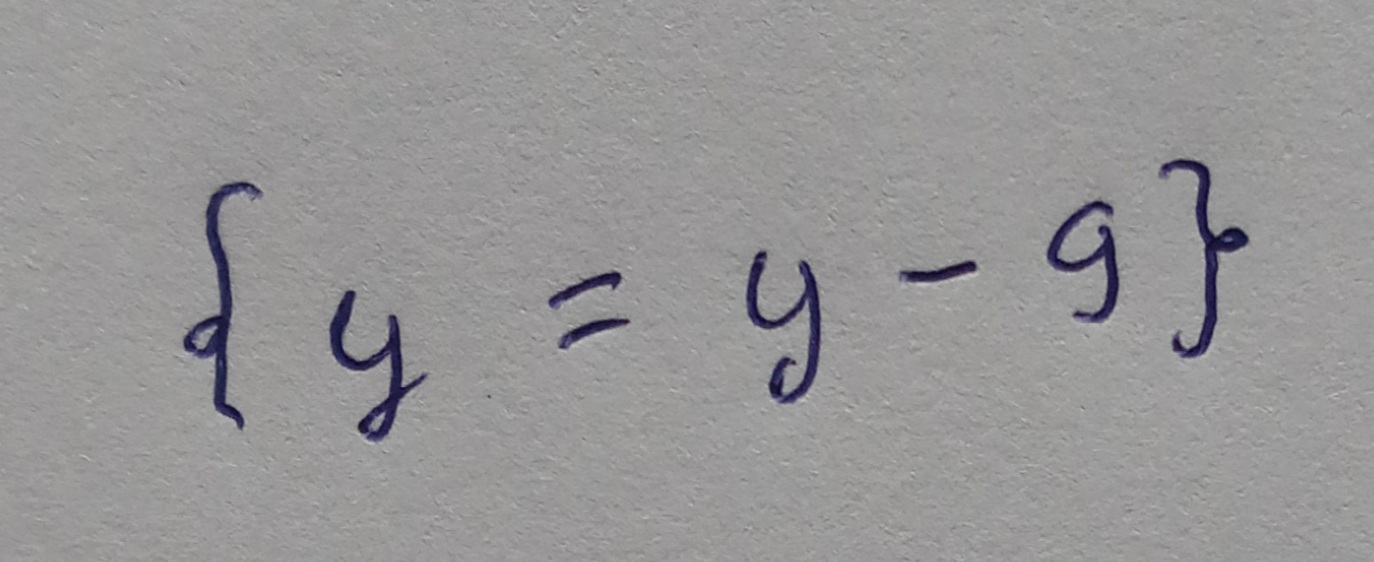 {y = y - 9}